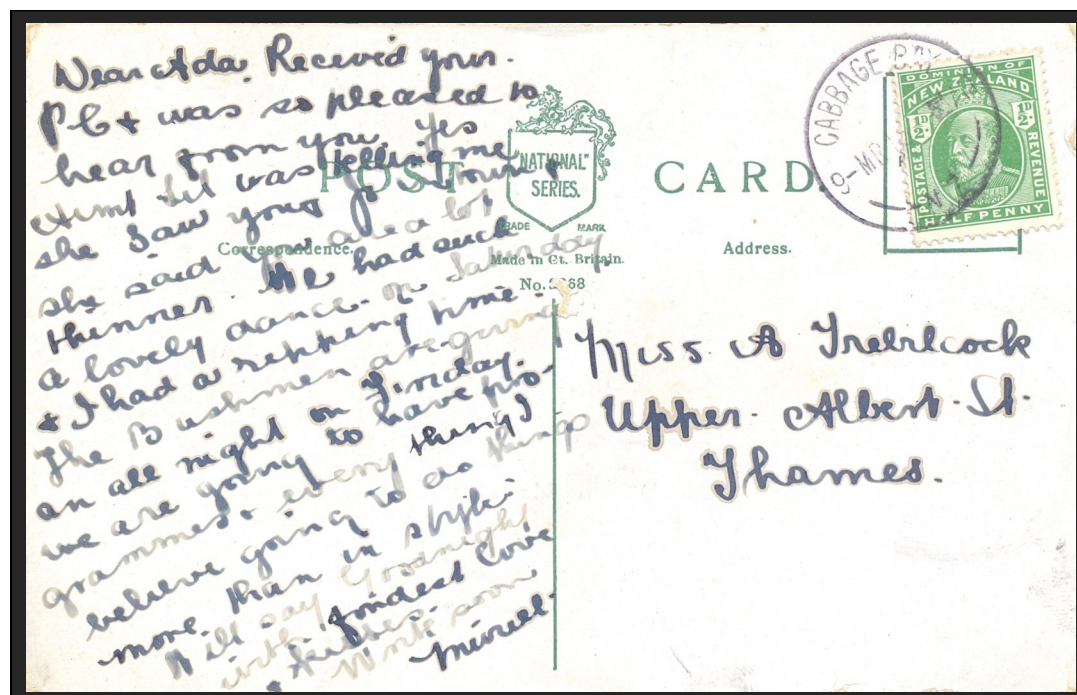 Dear Ada. Received your.
P C + was so pleased to
hear from you. Yes
Aunt Lil was telling me
she saw you in Town +
she said you a lot
thinner. We had such
a lovely dance on Saturday,
+ I had a ripping time.
The Bushmen are giving
an all night on Friday.
we are going to have pro-
grammes + every thing I
believe going to do things
more than in style.
Will say Goodnight
with fondest love
+ kisses.
Write soon
Muriel.
POST CARD.
"NATIONAL"
SERIES.
TRADE MARK
Correspondence.
Made in Gt. Britain.
Address.
CABBAGE BAY
9-MR
DOMINION OF
NEW ZEALAND
½D ½D
POSTAGE & REVENUE
HALF PENNY
Miss A Trebilcock
Upper Albert St.
Thames.